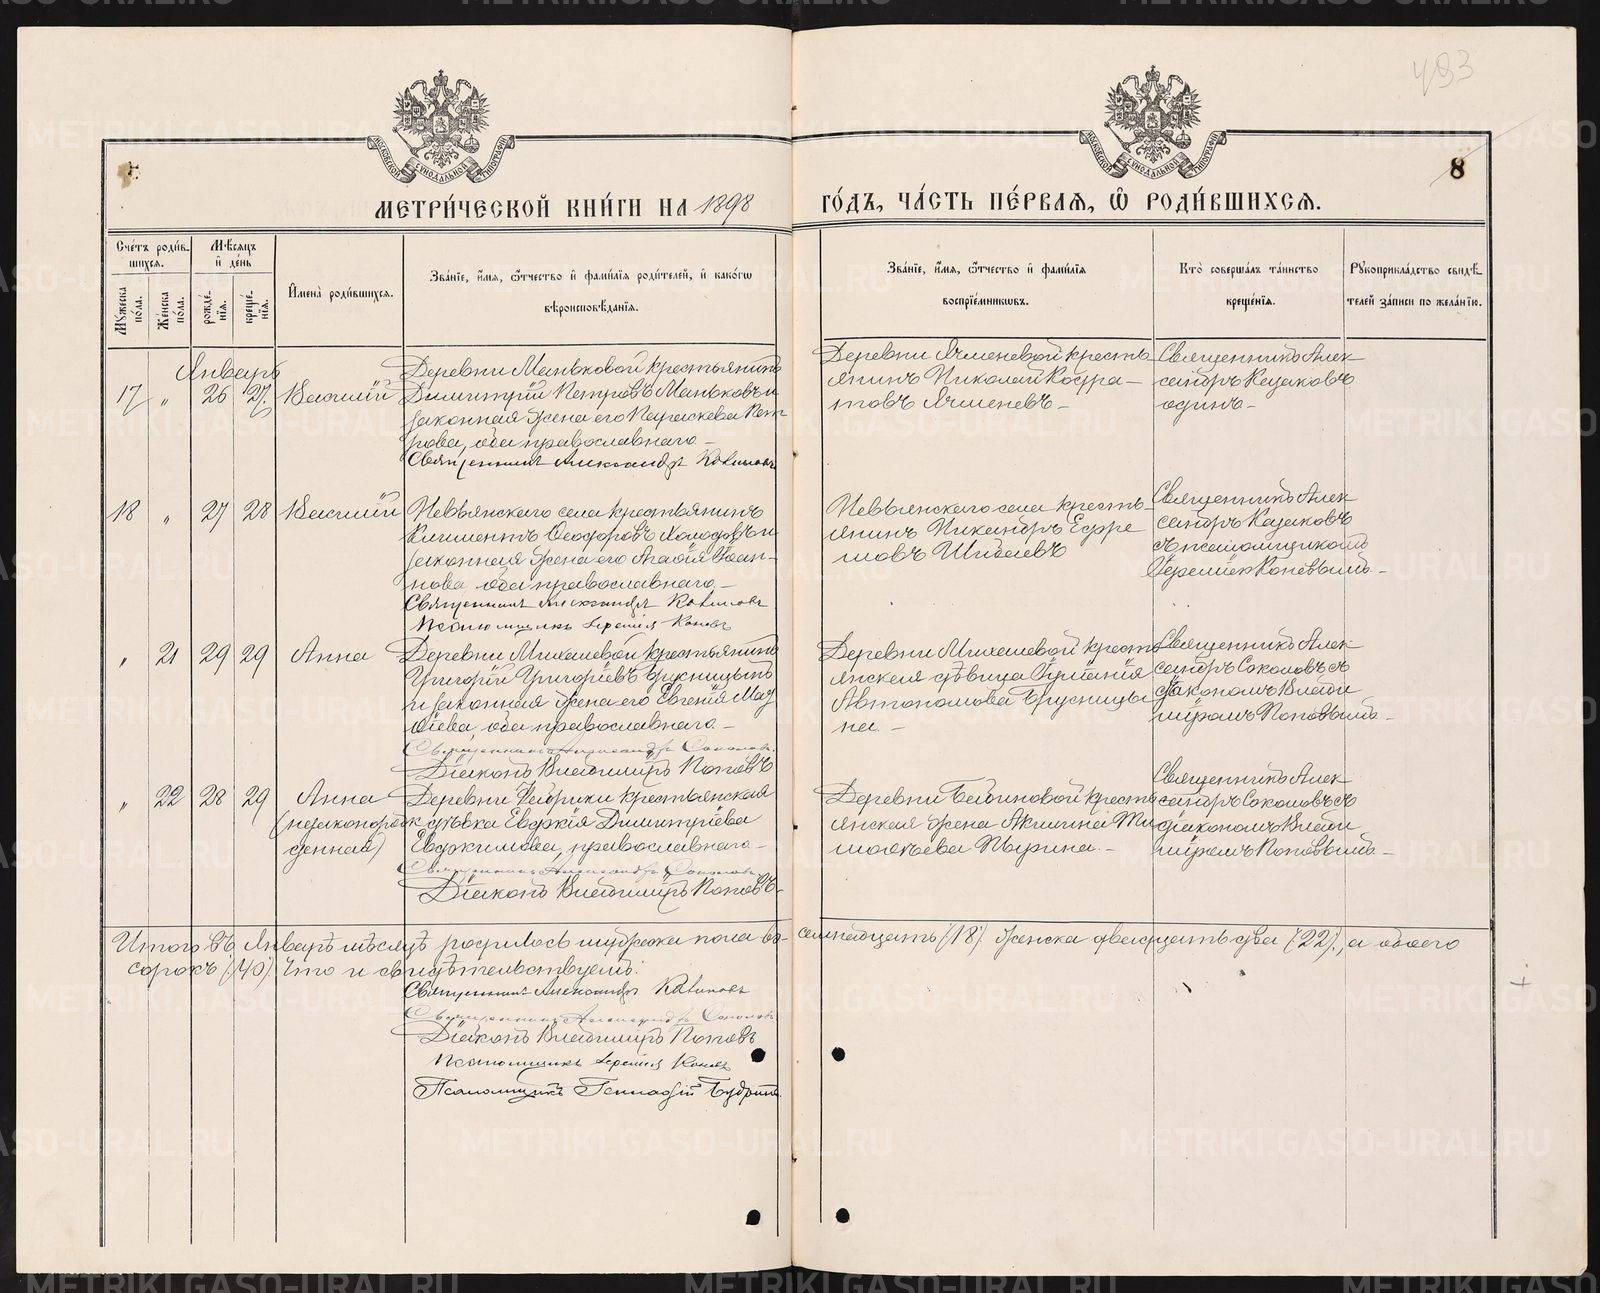 483
8
МОСКОВСКОЙ СѴНОДАЛЬНОЙ ТИПОГРАФІИ
МОСКОВСКОЙ СѴНОДАЛЬНОЙ ТИПОГРАФІИ
МЕТРИ́ЧЕСКОЙ КНИ́ГИ НА 1898 ГО́ДЪ, ЧА́СТЬ ПЕ́РВАѦ, Ѡ҆ РОДИ́ВШИХСѦ.
Сче́тъ роди́в-
шихсѧ.
Мꙋжеска по́ла.
Же́нска по́ла.
Мѣ́сѧцъ
и҆ де́нь
рожде́-нїѧ.
креще́-нїѧ.
И҆мена̀ роди́вшихсѧ.
Зва́нїе, и҆́мѧ, ѻ҆́тчество и҆ фами́лїѧ роди́телей, и҆ како́гѡ
вѣроисповѣ́данїѧ.
Зва́нїе, и҆́мѧ, ѻ҆́тчество и҆ фами́лїѧ
воспрїе́мниковъ.
Кто̀ соверша́лъ та́инство
креще́нїѧ.
Рꙋкоприкла́дство свидѣ́-
телей за́писи по жела́нїю.
Январь
17 „ 26 27 Василій
Деревни Маньковой крестьянинъ
Димитрій Петровъ Маньковъ и
законная жена его Параскева Пет
рова, оба православнаго —
Священникъ Александръ Казаковъ
Деревни Ячменевой кресть
янинъ Николай Кондра—
товъ Ячменевъ —
Священникъ Алек
сандръ Казаковъ
одинъ —
18 „ 27 28 Василій
Невьянскаго села крестьянинъ
Климентъ Ѳеодоровъ Холодовъ и
законная жена его Агаѳія Іоан-
нова, оба православнаго —
Священникъ Александръ Казаковъ
Псаломщикъ Іеремія Коневъ
Невьянскаго села кресть
янинъ Никандръ Ефре
мовъ Шибаевъ
Священникъ Алек
сандръ Казаковъ
съ псаломщикомъ
Іереміею Коневымъ —
„ 21 29 29 Анна
Деревни Михалевой крестьянинъ
Григорій Григоріевъ Брусницынъ
и законная жена его Евгенія Мат
ѳіева, оба православнаго —
Священникъ Александръ Соколовъ
Діаконъ Владиміръ Поповъ
Деревни Михалевой кресть
янская дѣвица Іуліанія
Автономова Брусницы
на. —
Священникъ Алек
сандръ Соколовъ съ
діакономъ Влади
міромъ Поповымъ —
„ 22 28 29 Анна
(незаконорож
денная)
Деревни Фабрики крестьянская
дѣвка Евдокія Димитріева
Евдокимова, православнаго —
Священникъ Александръ Соколовъ
Діаконъ Владиміръ Поповъ
Деревни Бабиновой кресть
янская жена Акилина Ти
моѳеева Пырина. —
Священникъ Алек
сандръ Соколовъ съ
діакономъ Влади
міромъ Поповымъ —
Итого въ Январѣ мѣсяцѣ родилось мужеска пола во- семнадцать (18) женска двадцать два (22), а обоего
сорокъ (40). Что и свидѣтельствуемъ:
Священникъ Александръ Казаковъ
Священникъ Александръ Соколовъ
Діаконъ Владиміръ Поповъ
Псаломщикъ Іеремія Коневъ
Псаломщикъ Геннадій Будринъ
METRIKI.GASO-URAL.RU